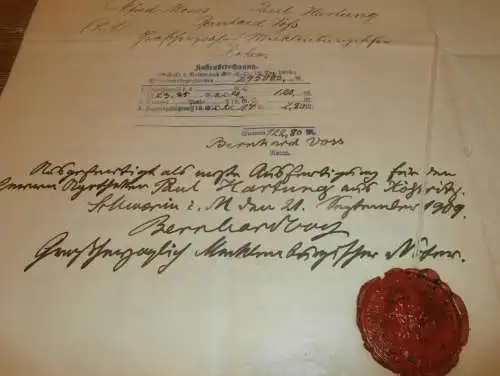 Alfred Moss Paul Hartung
(L.S.) Bernhard Voss
Großherzoglich Mecklenburgischer
Notar
Kostenberechnung.
295000,- M.
100,- M.
2,80 M.
Summa 122,80 M.
Bernhard Voss
Notar.
Ausgefertigt als erste Ausfertigung für den
Herrn Apotheker Paul Hartung aus
Schwerin i. M. den 21. September 1909.
Bernhard Voss
Großherzoglich Mecklenburgischer Notar.